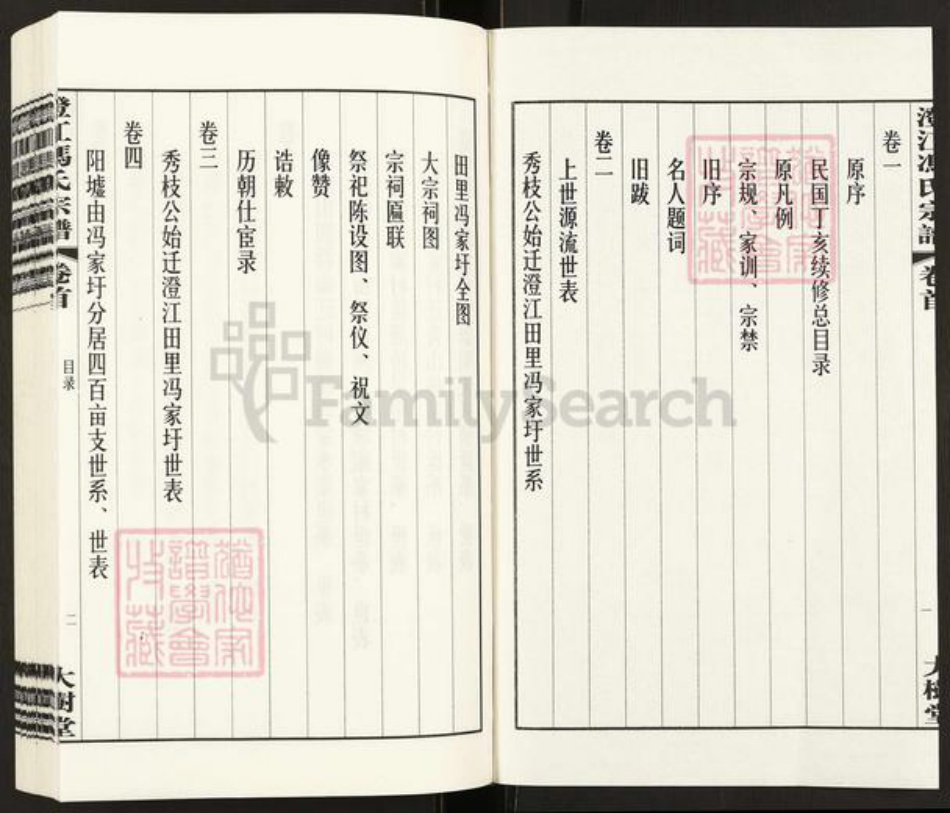 澄江冯氏宗谱 卷首
一
大树堂
卷一
原序
民国丁亥续修总目录
原凡例
宗规、家训、宗禁
旧序
名人题词
旧跋
卷二
上世源流世表
秀枝公始迁澄江田里冯家圩世系
田里冯家圩全图
大宗祠图
宗祠匾联
祭祀陈设图、祭仪、祝文
像赞
诰敕
历朝仕宦录
卷三
秀枝公始迁澄江田里冯家圩世表
卷四
阳墟由冯家圩分居四百亩支世系、世表
澄江馮氏宗譜 卷首
目录
二
大树堂
猶他家
譜學會
收藏
FamilySearch